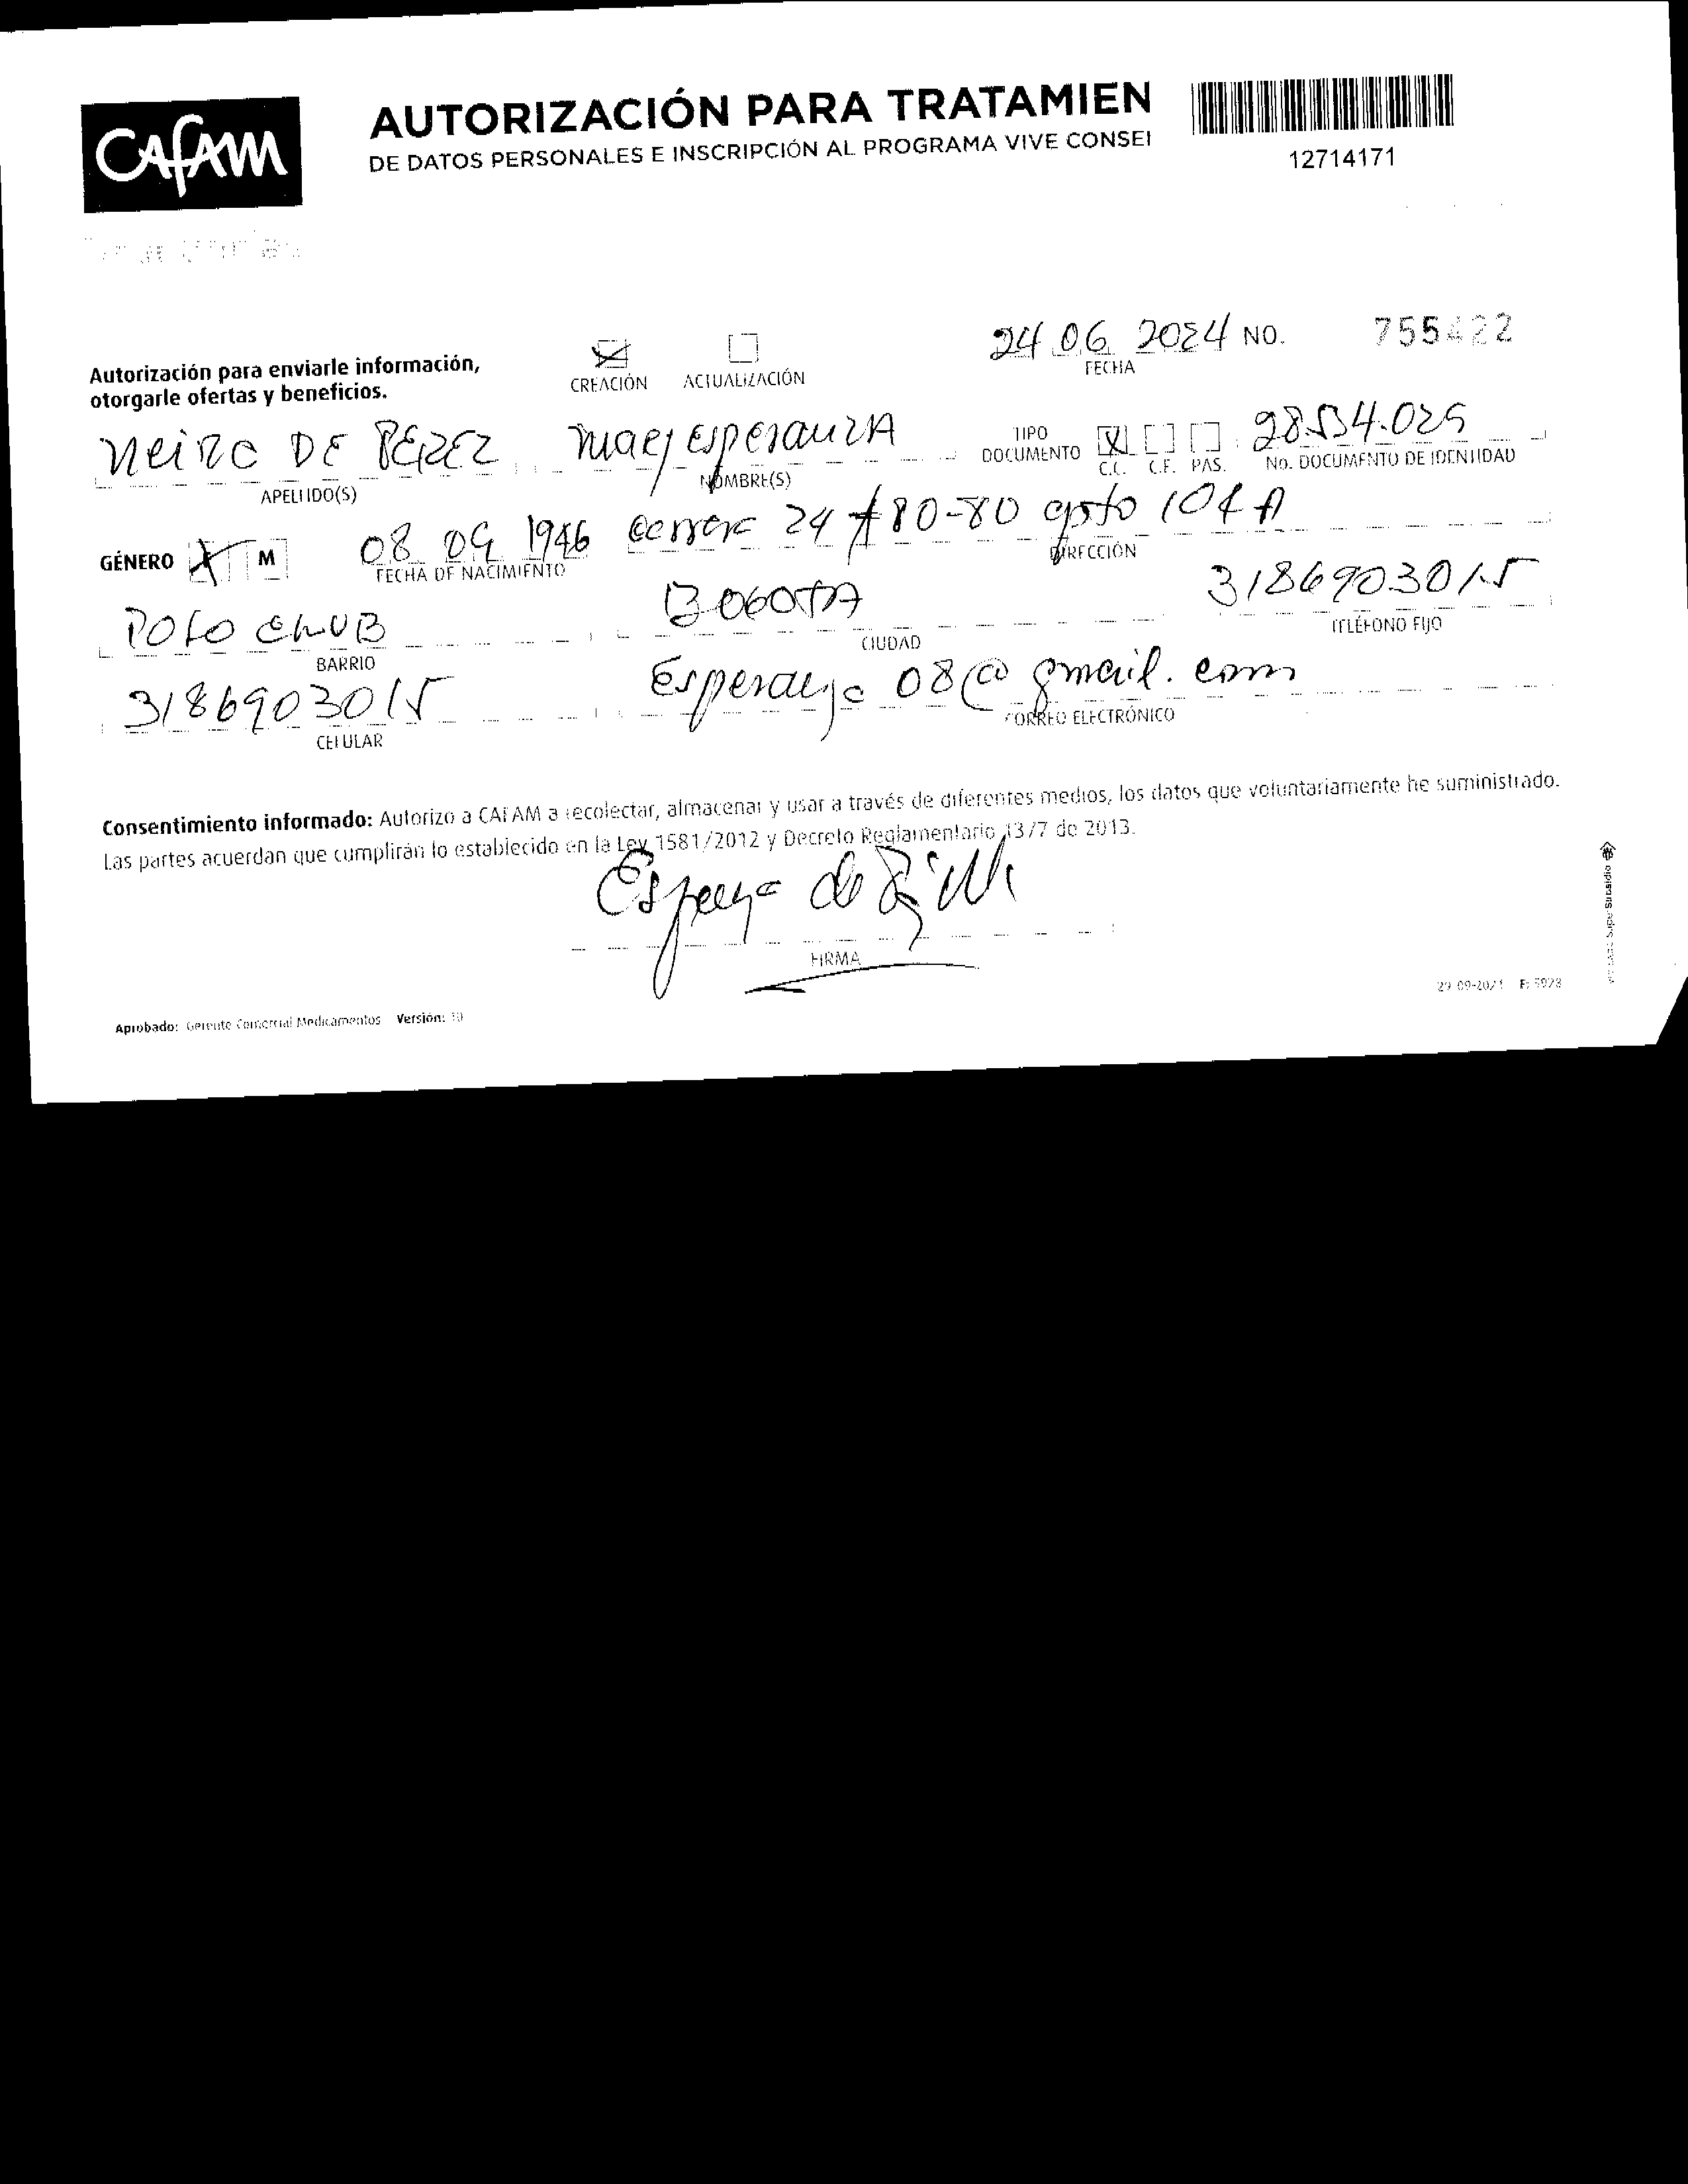 CAFAM
AUTORIZACIÓN PARA TRATAMIEN
DE DATOS PERSONALES E INSCRIPCIÓN AL PROGRAMA VIVE CONSEI
12714171
Autorización para enviarle información,
otorgarle ofertas y beneficios.
CREACIÓN ACTUALIZACIÓN
24 06 2024 NO. 755422
FECHA
NEIRC DE PEREZ
APELLIDO(S)
esperanza
NOMBRE(S)
TIPO
DOCUMENTO
C.C. C.E. PAS.
28.534.029
No. DOCUMENTO DE IDENTIDAD
GÉNERO M
08 09 1946
FECHA DE NACIMIENTO
Carrera 24 #80-80 apto 104 A
DIRECCIÓN
POLO CLUB
BARRIO
BOGOTA
CIUDAD
3186903015
TELÉFONO FIJO
3186903015
CELULAR
Esperanza 08@gmail.com
CORREO ELECTRÓNICO
Consentimiento informado: Autorizo a CAFAM a recolectar, almacenar y usar a través de diferentes medios, los datos que voluntariamente he suministrado.
Las partes acuerdan que cumplirán lo establecido en la Ley 1581/2012 y Decreto Reglamentario 1377 de 2013.
FIRMA
29-09-2021 F: 5928
Aprobado: Gerente Comercial Medicamentos Versión: 10